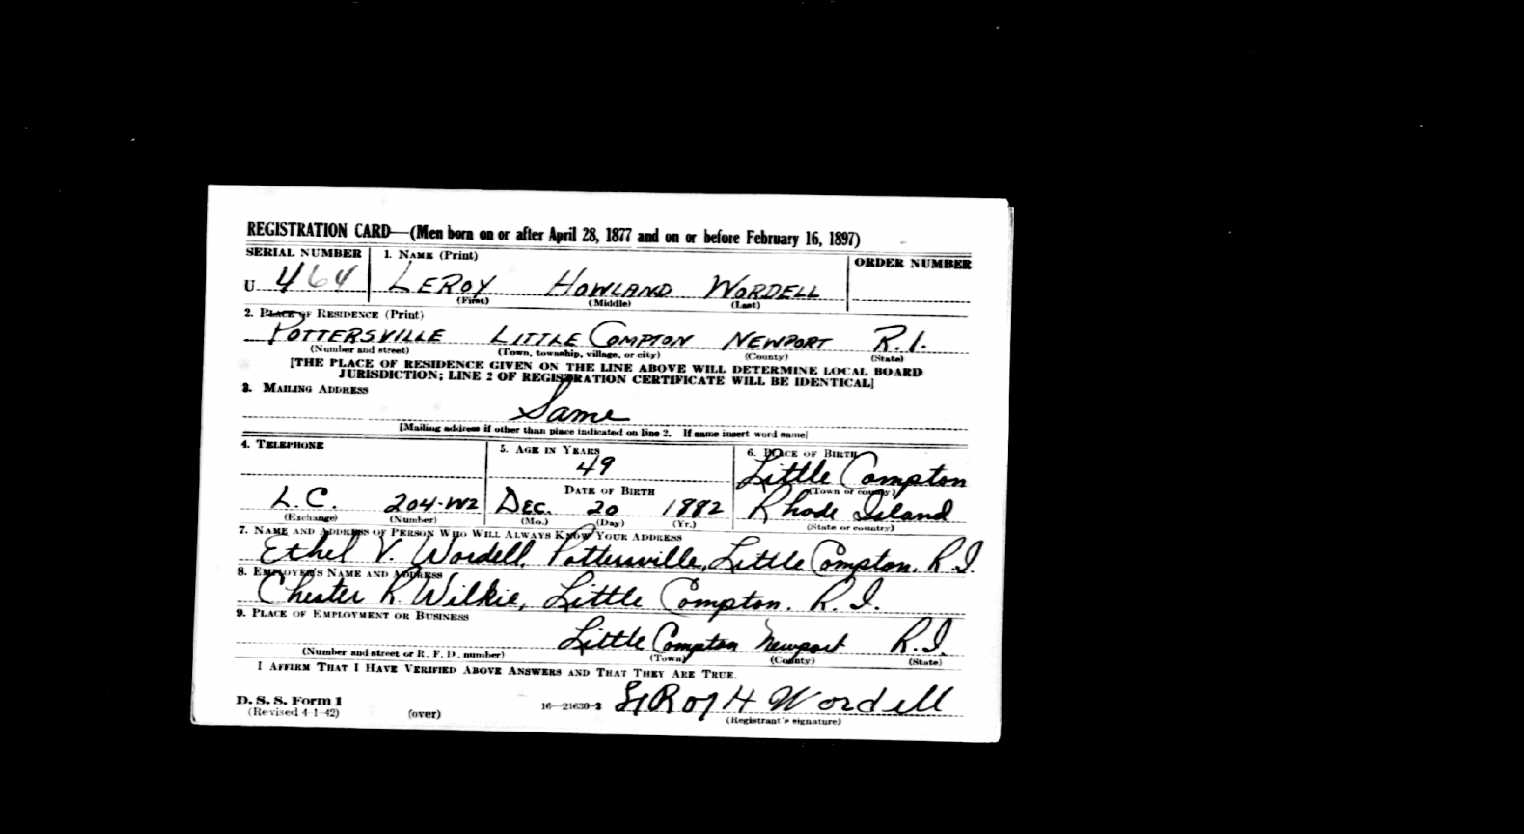 REGISTRATION CARD—(Men born on or after April 28, 1877 and on or before February 16, 1897)
SERIAL NUMBER 1. NAME (Print) ORDER NUMBER
U 464 LEROY HOWLAND WORDELL
(First) (Middle) (Last)
2. PLACE OF RESIDENCE (Print)
POTTERSVILLE LITTLE COMPTON NEWPORT R.I.
(Number and street) (Town, township, village, or city) (County) (State)
[THE PLACE OF RESIDENCE GIVEN ON THE LINE ABOVE WILL DETERMINE LOCAL BOARD
JURISDICTION; LINE 2 OF REGISTRATION CERTIFICATE WILL BE IDENTICAL]
3. MAILING ADDRESS
Same
[Mailing address if other than place indicated on line 2. If same insert word same]
4. TELEPHONE 5. AGE IN YEARS 6. PLACE OF BIRTH
49 Little Compton
DATE OF BIRTH (Town or county)
L.C. 204-W2 DEC. 20 1882 Rhode Island
(Exchange) (Number) (Mo.) (Day) (Yr.) (State or country)
7. NAME AND ADDRESS OF PERSON WHO WILL ALWAYS KNOW YOUR ADDRESS
Ethel V. Wordell, Pottersville, Little Compton. R.I.
8. EMPLOYER'S NAME AND ADDRESS
Chester R. Wilkie, Little Compton. R.I.
9. PLACE OF EMPLOYMENT OR BUSINESS
Little Compton Newport R.I.
(Number and street or R. F. D. number) (Town) (County) (State)
I AFFIRM THAT I HAVE VERIFIED ABOVE ANSWERS AND THAT THEY ARE TRUE.
D. S. S. Form 1
(Revised 4-1-42) (over) 16—21630-2 LeRoy H Wordell
(Registrant's signature)